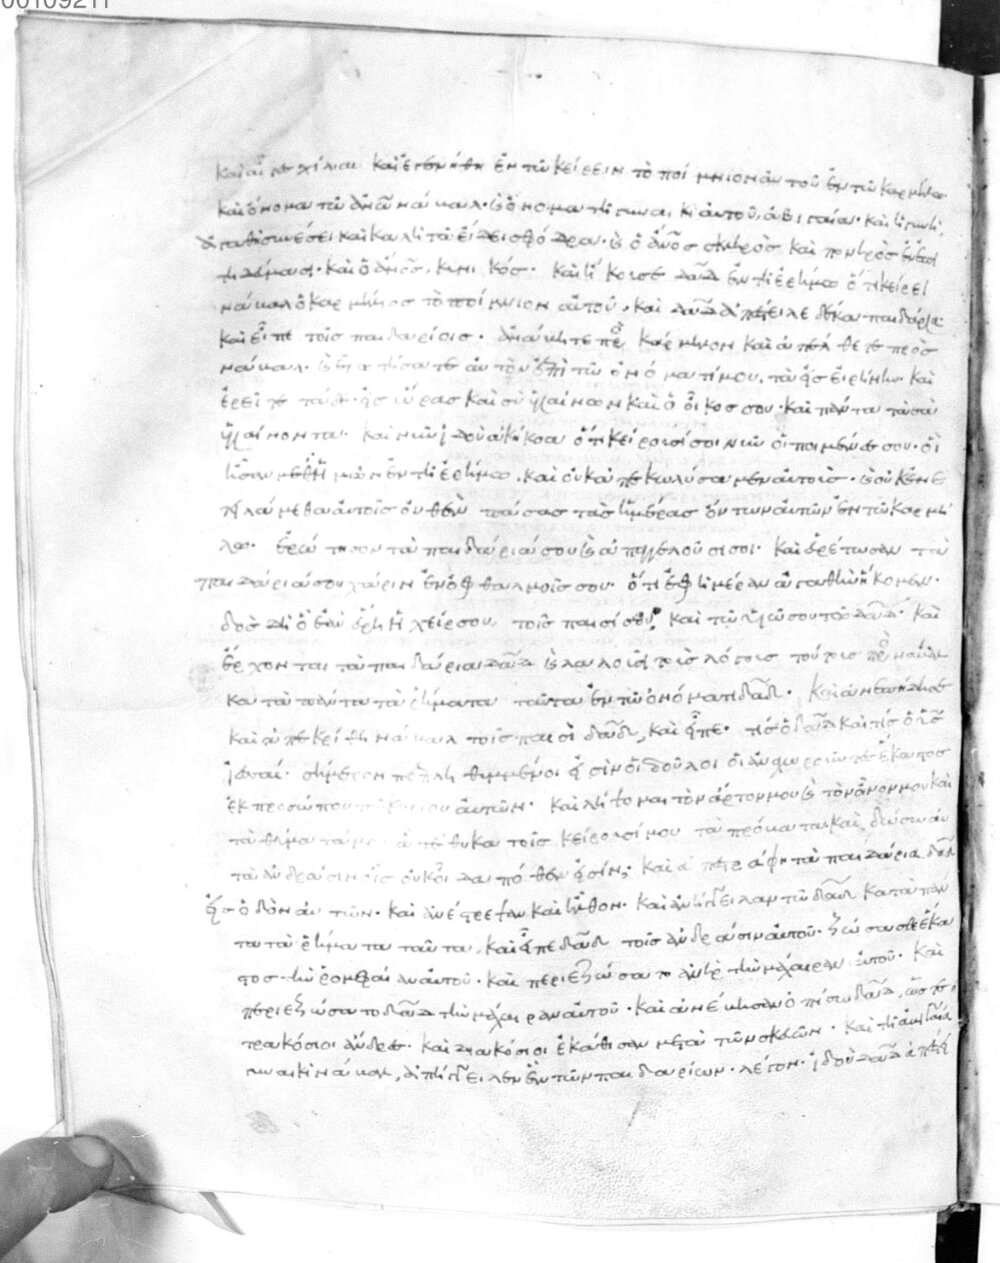 00109211
καὶ αἶγες χίλιαι. καὶ ἐγενήθη ἐν τῶ κείρειν τὸ ποίμνιον αὐτοῦ ἐν τῶ καρμήλω.
καὶ ὄνομα τῶ ἀνῶ νάβαλ. καὶ ὄνομα τῆ γυναικὶ αὐτοῦ, ἀβιγαία. καὶ ἡ γυνὴ
ἀγαθὴ συνέσει καὶ καλὴ τῶ εἴδει σφόδρα. καὶ ὁ ἀνος σκληρὸς καὶ πονηρὸς ἐν ἐπι
τηδεύμασι. καὶ ὁ ἀνος, κυνικός. καὶ ἤκουσε δαδ ἐν τῆ ἐρήμω ὅτι κείρει
νάβαλ ὁ καρμήλιος τὸ ποίμνιον αὐτοῦ. καὶ δαδ ἀπέστειλε δέκα παιδάρια
καὶ εἶπε τοῖς παιδαρίοις. ἀνάβητε πρὸς κάρμηλον καὶ ἀπέλθετε πρὸς
νάβαλ. καὶ ἐρωτήσατε αὐτὸν ἐπὶ τῶ ὀνόματί μου, τὰ εἰς εἰρήνην. καὶ
ἐρεῖτε τάδε. εἰς ὥρας καὶ σὺ ὑγιαίνων καὶ ὁ οἶκος σου. καὶ πάντα τὰ σὰ
ὑγιαίνοντα. καὶ νῦν ἰδοὺ ἀκήκοα ὅτι κείρουσί σοι νῦν οἱ ποιμένες σου. οἳ
ἦσαν μεθ' ἡμῶν ἐν τῆ ἐρήμω, καὶ οὐκ ἀπεκωλύσαμεν αὐτοὺς. καὶ οὐκ ἐνε
τειλάμεθα αὐτοῖς οὐθὲν πάσας τὰς ἡμέρας ὄντων αὐτῶν ἐν τῶ καρμή
λω. ἐρώτησον τὰ παιδάριά σου καὶ ἀπαγγελοῦσί σοι. καὶ εὑρέτωσαν τὰ
παιδάριά σου χάριν ἐν ὀφθαλμοῖς σου. ὅτι ἐφ ἡμέραν ἀγαθὴν ἥκομεν.
δὸς δὴ ὃ ἐὰν εὕρη ἡ χείρ σου, τοῖς παισί σου, καὶ τῶ υἱῶ σου τῶ δαδ. καὶ
ἔρχονται τὰ παιδάρια δαδ καὶ λαλοῦσι τοὺς λόγους τούτους πρὸς νάβαλ
κατὰ πάντα τὰ ῥήματα ταῦτα ἐν τῶ ὀνόματι δαδ. καὶ ἀνεπήδησε
καὶ ἀπεκρίθη νάβαλ τοῖς παισὶ δαδ, καὶ εἶπε. τίς ὁ δαδ καὶ τίς ὁ υἱὸς
ἰεσσαί. σήμερον πεπληθυμμένοι εἰσὶν οἱ δοῦλοι οἱ ἀναχωροῦντες ἕκαστος
ἐκ προσώπου τοῦ κυρίου αὐτῶν. καὶ λήψομαι τὸν ἄρτον μου καὶ τὸν οἶνον μου καὶ
τὰ θύματά μου ἃ τέθυκα τοῖς κείρουσί μου τὰ πρόβατα καὶ δώσω αὐ
τὰ ἀνδράσιν οἷς οὐκ οἶδα πόθεν εἰσίν; καὶ ἀπεστράφη τὰ παιδάρια δαδ
εἰς ὁδὸν αὐτῶν. καὶ ἀνέστρεψαν καὶ ἦλθον. καὶ ἀνήγγειλαν τῶ δαδ κατὰ πάν
τα τὰ ῥήματα ταῦτα, καὶ εἶπε δαδ τοῖς ἀνδράσιν αὐτοῦ. ζώσασθε ἕκα
στος τὴν ῥομφαίαν αὐτοῦ. καὶ περιεζώσατο ἀνὴρ τὴν μάχαιραν αὐτοῦ. καὶ
περιεζώσατο δαδ τὴν μάχαιραν αὐτοῦ. καὶ ἀνέβησαν ὀπίσω δαδ, ὡς τε
τρακόσιοι ἄνδρες. καὶ διακόσιοι ἐκάθισαν μετὰ τῶν σκευῶν. καὶ τῆ ἀβιγαία
γυναικὶ νάβαλ, ἀπήγγειλεν ἓν τῶν παιδαρίων λέγον. ἰδοὺ δαδ ἀπέστει